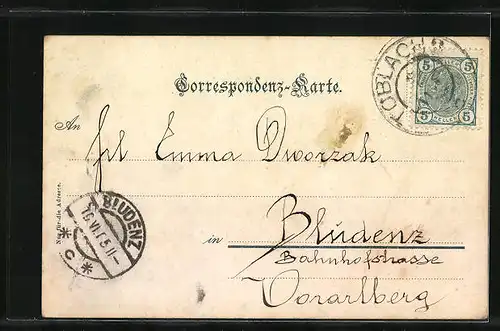 Correspondenz-Karte.
TOBLACH
5 5
HELLER
5 5
An
Frl Emma Dworzak
Nur für die Adresse.
BLUDENZ
16.VI. 5.11-
* c *
in Bludenz
Bahnhofstrasse
Vorarlberg